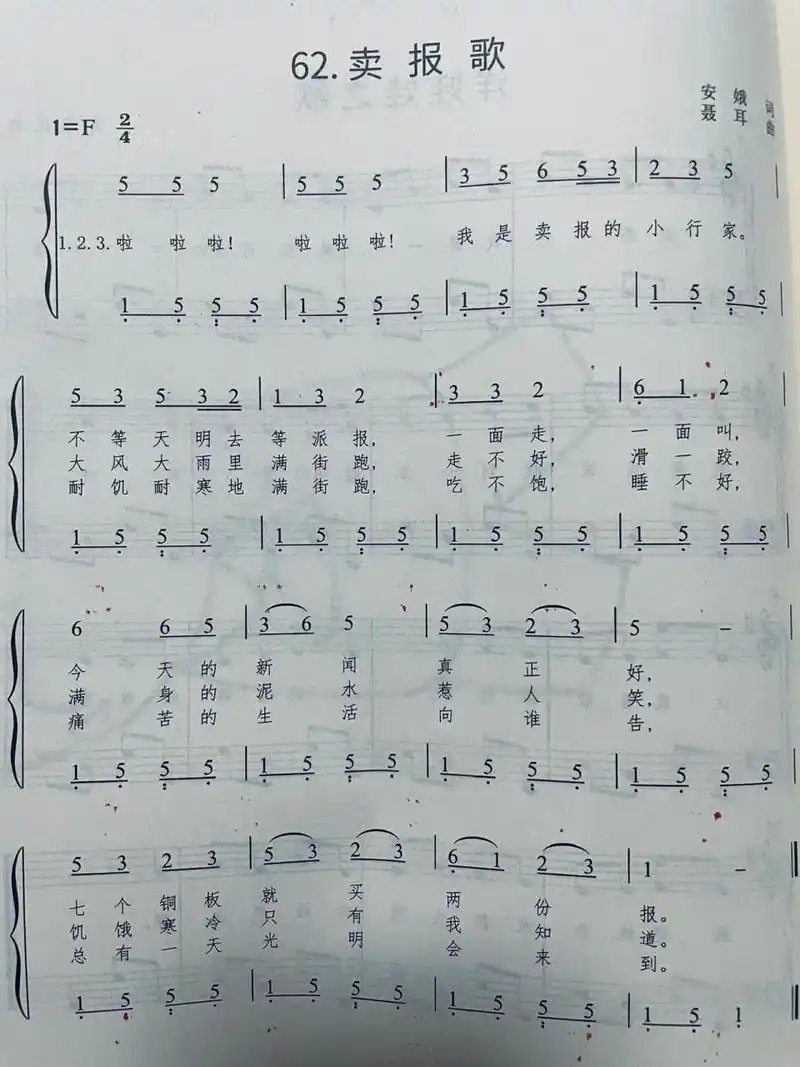 62. 卖 报 歌
安 娥 词
聂 耳 曲
1=F 2/4
5 5 5 | 5 5 5 | 3 5 6 5 3 | 2 3 5 |
1.2.3. 啦 啦 啦! 啦 啦 啦! 我 是 卖 报 的 小 行 家。
1 5 5 5 | 1 5 5 5 | 1 5 5 5 | 1 5 5 5 |
5 3 5 3 2 | 1 3 2 | 3 3 2 | 6 1 2 |
不 等 天 明 去 等 派 报, 一 面 走, 一 面 叫,
大 风 大 雨 里 满 街 跑, 走 不 好, 滑 一 跤,
耐 饥 耐 寒 地 满 街 跑, 吃 不 饱, 睡 不 好,
1 5 5 5 | 1 5 5 5 | 1 5 5 5 | 1 5 5 5 |
6 6 5 | 3 6 5 | 5 3 2 3 | 5 – |
今 天 的 新 闻 真 正 好,
满 身 的 泥 水 惹 人 笑,
痛 苦 的 生 活 向 谁 告,
1 5 5 5 | 1 5 5 5 | 1 5 5 5 | 1 5 5 5 |
5 3 2 3 | 5 3 2 3 | 6 1 2 3 | 1 – ‖
七 个 铜 板 就 买 两 份 报。
饥 饿 寒 冷 只 有 我 知 道。
总 有 一 天 光 明 会 来 到。
1 5 5 5 | 1 5 5 5 | 1 5 5 5 | 1 5 1 ‖